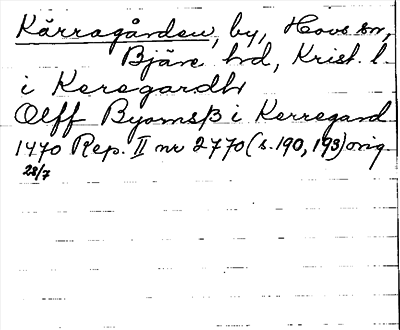 Kärragården, by, Hovs sn,
Bjäre hd, Krist. l.
i Keregardh
Olff Byomsß i Kerregard
1470 Rep. II nr 2770 (s. 190, 193) orig.
28/7